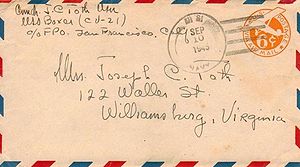 J.C. Toth USN
USS Boxer (CV-21)
c/o F.P.O. San Francisco, Cal
SEP
10
1945
6¢
AIR MAIL
Mrs. Joseph C. Toth
122 Waller St
Williamsburg, Virginia